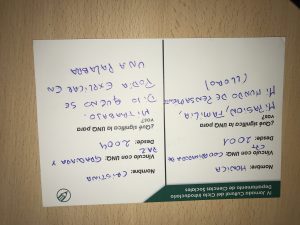 IV Jornada Cultural del Ciclo Introductorio
Departamento de Ciencias Sociales
Nombre: MÓNICA
Vínculo con UNQ: COORDINADORA DE
Desde: 2001
¿Qué significa la UNQ para
vos?
MI PASIÓN, FAMILIA,
MI MUNDO DE PENSAMIENTO
(LLORO)
Nombre: CRISTINA
Vínculo con UNQ: GRADUADA Y
Desde: 2004
¿Qué significa la UNQ para
vos?
MI TRABAJO.
QUE NO SE
PODÍA EXPLICAR EN
UNA PALABRA